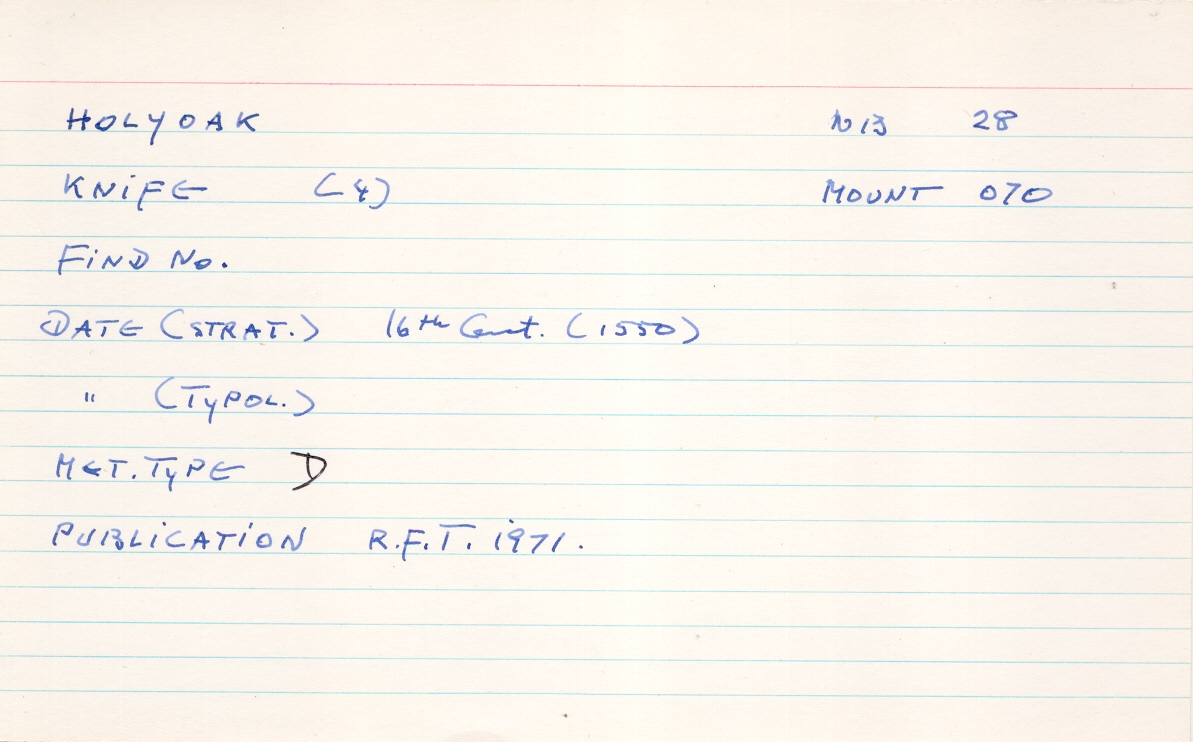 HOLYOAK N13 28
KNiFE (4) MOUNT 070
FiND No.
DATE (STRAT.) 16th Cent. (1550)
" (TYPOL.)
MET. TYPE D
PUBLiCATiON R.F.T. 1971.